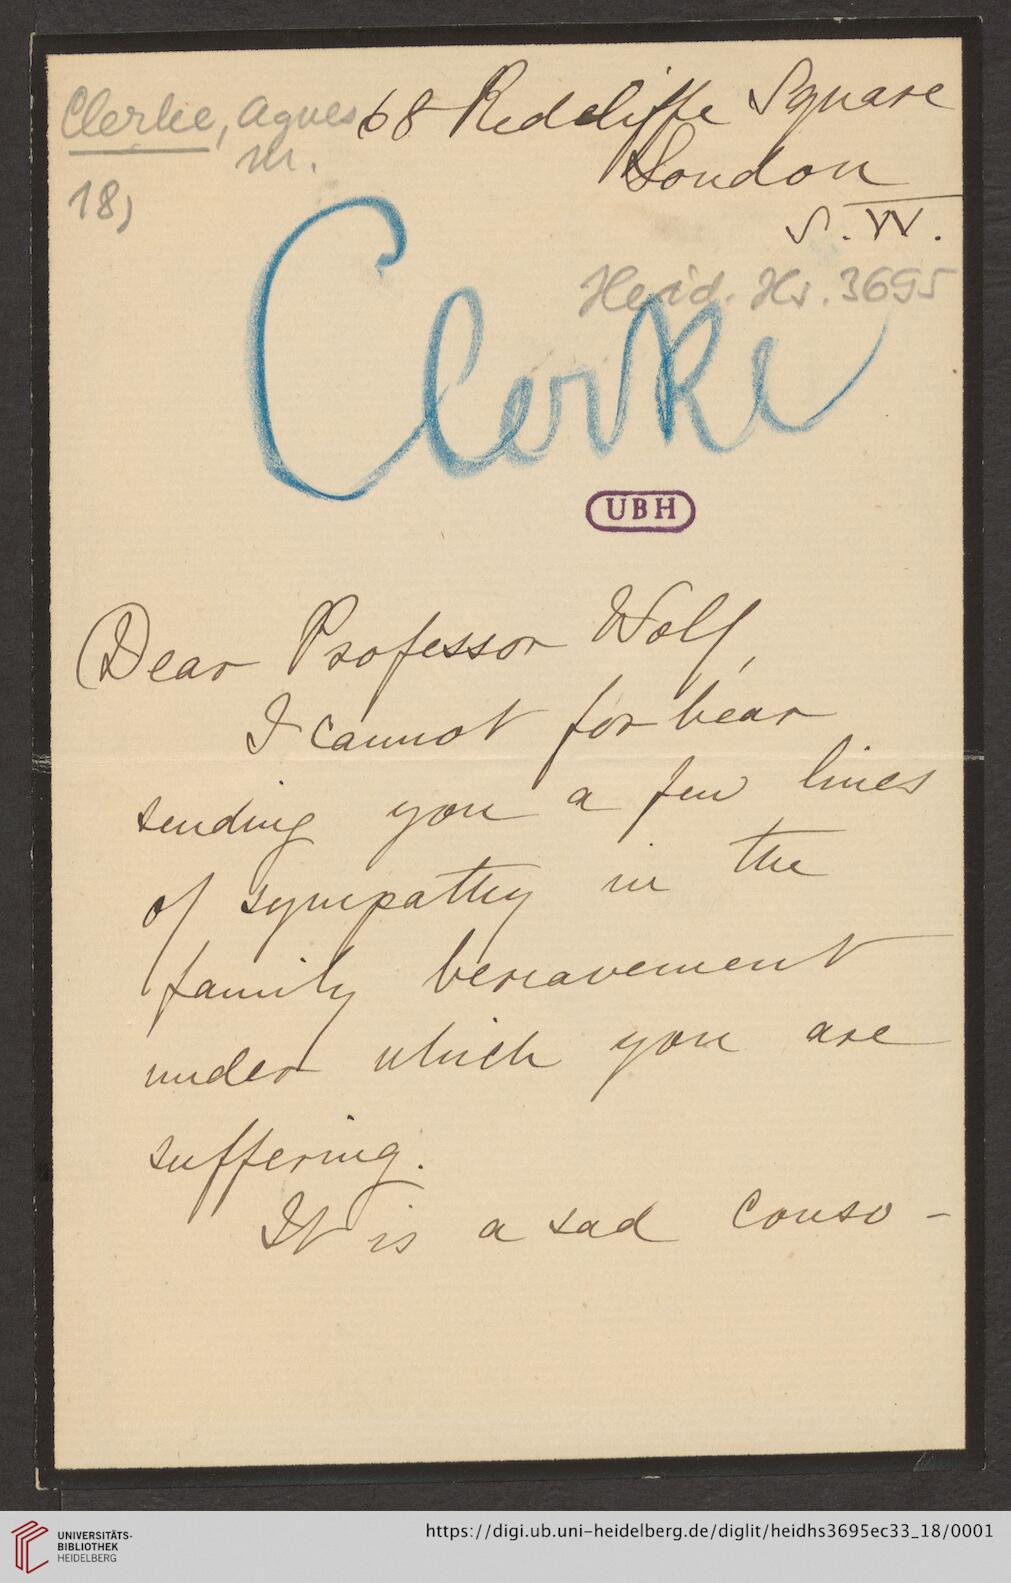 Clerke, Agnes
M.
18)
68 Redcliffe Square
London
S.W.
Heid. Hs. 3695
Clerke
UBH
Dear Professor Wolf,
I cannot forbear
sending you a few lines
of sympathy in the
family bereavement
under which you are
suffering.
It is a sad conso-
UNIVERSITÄTS-
BIBLIOTHEK
HEIDELBERG
https://digi.ub.uni-heidelberg.de/diglit/heidhs3695ec33_18/0001